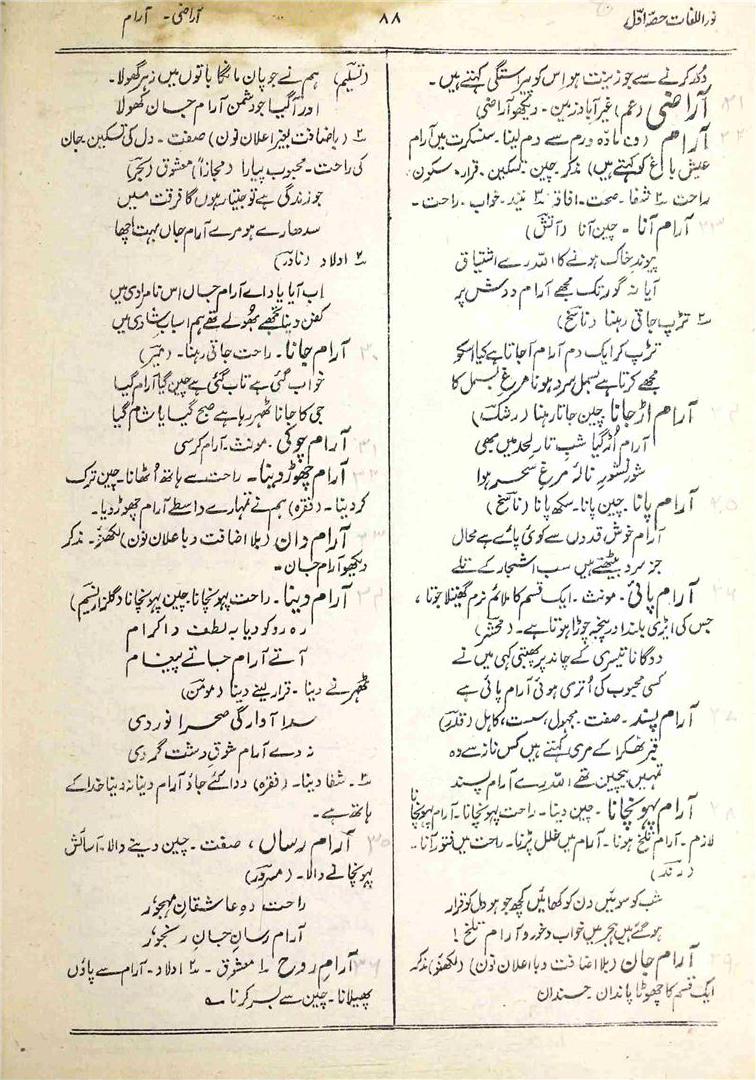 نور اللغات حصّہ اوّل
۸۸
آراضی۔ آرام
دُور کرنے سے جو زینت ہو اس کو پیراستگی کہتے ہیں۔
آراضی (عم) غیر آباد زمین۔ دیکھو آراضی
آرام (ن مادہ درم سے دم لینا۔ سنسکرت میں آرام
عیش باغ کو کہتے ہیں) مذکر۔ چین۔ تسکین۔ قرار۔ سکون
راحت ۲ شفا۔ صحت۔ افاقہ ۳ نیند۔ خواب۔ راحت۔
آرام آنا۔ چین آنا (آتش)
پیوندِ خاک ہونے کا اللہ رے اشتیاق
آیا نہ گور تک مجھے آرام دوش پر
۲ تڑپ جاتی رہنا (ناسخ)
تڑپ کر ایک دم آرام آجاتا ہے کیا اسکو
مجھے کرتا ہے بسمل سرد ہونا مرغِ بسمل کا
آرام اُڑ جانا چین جاتا رہنا (رشک)
آرام اُڑ گیا شبِ تارِ لحد میں بھی
شورِ نشور نالۂ مرغِ سحر ہوا
آرام پانا۔ چین پانا۔ سکھ پانا (ناسخ)
آرام خوش قدوں سے کوئی پائے ہے محال
جز سرد بیٹھتے ہیں سب اشجار کے تلے
آرام پائی۔ مونث۔ ایک قسم کا ملائم نرم گھیتلا جوتا،
جس کی ایڑی بلند اور پنجہ چوڑا ہوتا ہے۔ (محشر)
دوگانا تیسری کے چاند پر پھبتی کہی میں نے
کسی محبوب کی اُتری ہوئی آرام پائی ہے
آرام پسند۔ صفت۔ مجہول، سست، کاہل (قدر)
قبر ٹھکرا کے مری کہتے ہیں کس ناز سے وہ
تمہیں بیچین تھے اللہ رے آرام پسند
آرام پہونچانا۔ چین دینا۔ راحت پہونچانا۔ آرام پہونچنا
لازم۔ آرام تلخ ہونا۔ آرام میں خلل پڑنا۔ راحت میں فتور آنا۔
(رند)
شب کو سوئیں دن کو کھائیں کچھ جو ہو دل کو قرار
ہو گئے ہیں ہجر میں خواب و خور و آرام تلخ!
آرام جان (بلا اضافت و با اعلان نون) (لکھنؤ) مذکر
ایک قسم کا چھوٹا پاندان۔ حسندان
(تسلیم) ہم نے جو پان مانگا باتوں میں زہر گھولا۔
اور آگیا جو دشمن آرام جان کھولا
۲ (باضافت بغیر اعلان نون) صفت۔ دل کی تسکین۔ جان
کی راحت۔ محبوب پیارا (مجازاً) معشوق (بحر)
جو زندگی ہے تو جیتا رہوں گا فرقت میں
سدھارے ہو مرے آرام جاں بہت اچھا
۳ اولاد (نادر)
اب آیا یاد اے آرام جاں اس نامرادی میں
کفن دینا تجھے بھولے تھے ہم اسبابِ شادی میں
آرام جانا۔ راحت جاتی رہنا۔ (میر)
خواب گئی ہے تاب گئی ہے چین گیا آرام گیا
جی کا جانا ٹھہر رہا ہے صبح گیا یا شام گیا
آرام چوکی۔ مونث۔ آرام کرسی
آرام چھوڑ دینا۔ راحت سے ہاتھ اُٹھانا۔ چین ترک
کر دینا۔ (فقرہ) ہم نے تمہارے واسطے آرام چھوڑ دیا۔
آرام دان (بلا اضافت و با علان نون) لکھنؤ۔ مذکر
دیکھو آرام جان۔
آرام دینا۔ راحت پہونچانا چین پہونچانا (گلزار نسیم)
رہ رو کو دیا بہ لطف و اکرام
آتے آرام جاتے پیغام
ٹھہرنے دینا۔ قرار لینے دینا (مومن)
سدا آوارگی صحرا نوردی
نہ دے آرام شوقِ دشت گردی
۲۔ شفا دینا۔ (فقرہ) دوا کئے جاؤ آرام دینا نہ دینا خدا کے
ہاتھ ہے۔
آرام رساں، صفت۔ چین دینے والا۔ آسائش
پہونچانے والا۔ (سرور)
راحت دہِ عاشقانِ مہجور
آرام رسانِ جانِ رنجور
آرامِ روح ۱ معشوق۔ ۲ اولاد۔ آرام سے پاؤں
پھیلانا۔ چین سے بسر کرنا ؎